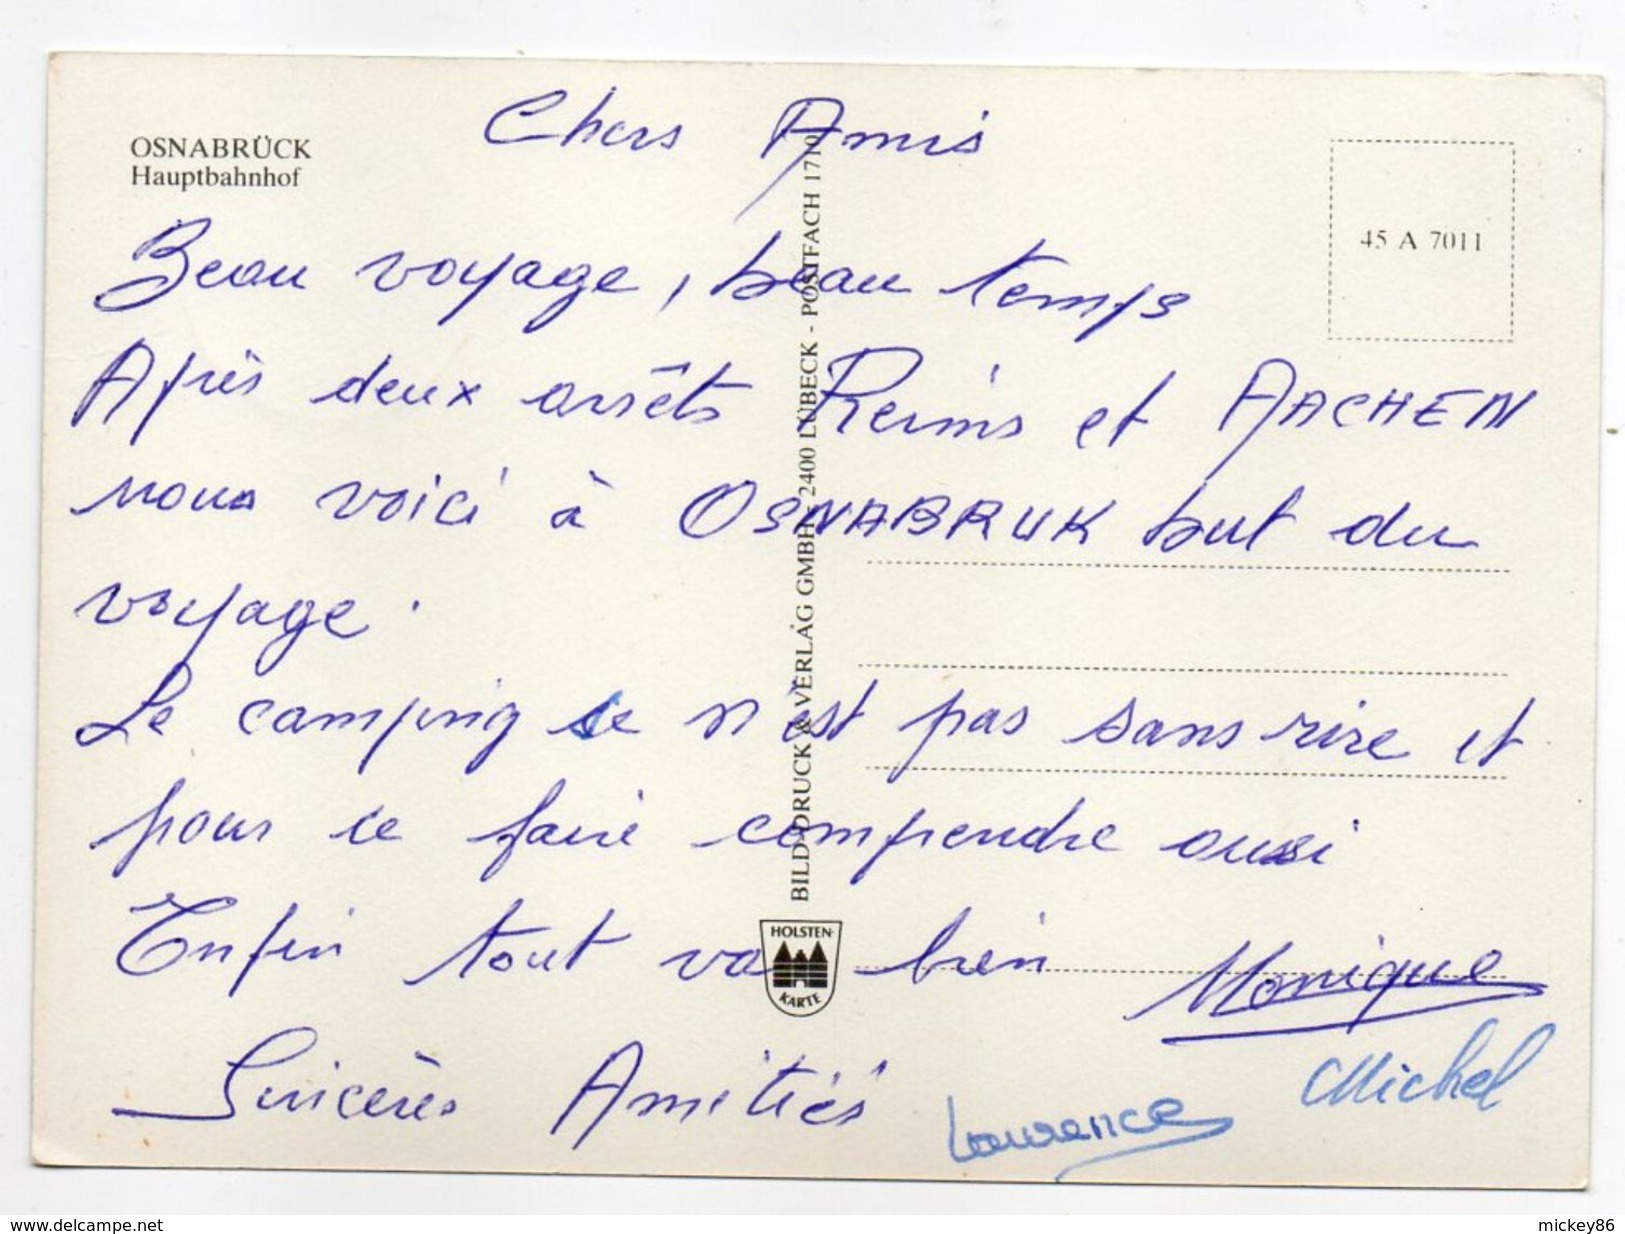 OSNABRÜCK
Hauptbahnhof
Chers Amis
45 A 7011
Beau voyage, beau temps
Après deux arrêts Reims et AACHEN
nous voici à OSNABRUK but du
voyage.
Le camping ce n'est pas sans rire et
pour ce faire comprendre aussi
Enfin tout va bien
Monique
Sincères Amitiés
Laurence
Michel
BILD-DRUCK & VERLAG GMBH - 2400 LÜBECK - POSTFACH 1710
HOLSTEN-
KARTE
www.delcampe.net
mickey86